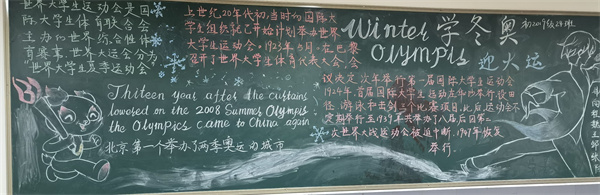 世界大学生运动会是国
际大学生体育联合会
主办的世界综合性体
育赛事，世界大运会分为
“世界大学生夏季运动会”
上世纪20年代初，当时的国际大
学生组织就已开始计划举办世界
大学生运动会。1923年5月，在巴黎
召开了世界大学生体育代表大会，会
议决定次年举行第一届国际大学生运动会
1924年，首届国际大学生运动会
田径、游泳和击剑三个比赛项目，此后，运动会不
定期举行至1939年共举办了八届后因第二
次世界大战运动会被迫中断，1947年恢复
举行.
Winter学冬奥
Olympis 迎大运
初2019级28班
Thiteen year after the curtains
lowosed on the 2008 Summer Olympis
the Olympics came to China again
北京第一个举办了两季奥运动城市